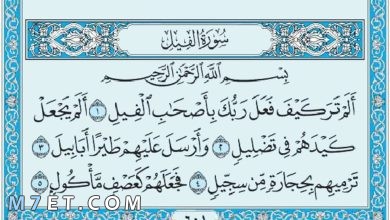 سُورَةُ الفِيلِ
بِسْمِ اللَّهِ الرَّحْمَٰنِ الرَّحِيمِ
أَلَمْ تَرَ كَيْفَ فَعَلَ رَبُّكَ بِأَصْحَابِ الْفِيلِ ١ أَلَمْ يَجْعَلْ
كَيْدَهُمْ فِي تَضْلِيلٍ ٢ وَأَرْسَلَ عَلَيْهِمْ طَيْرًا أَبَابِيلَ ٣
تَرْمِيهِم بِحِجَارَةٍ مِّن سِجِّيلٍ ٤ فَجَعَلَهُمْ كَعَصْفٍ مَّأْكُولٍ ٥
M7ET.COM